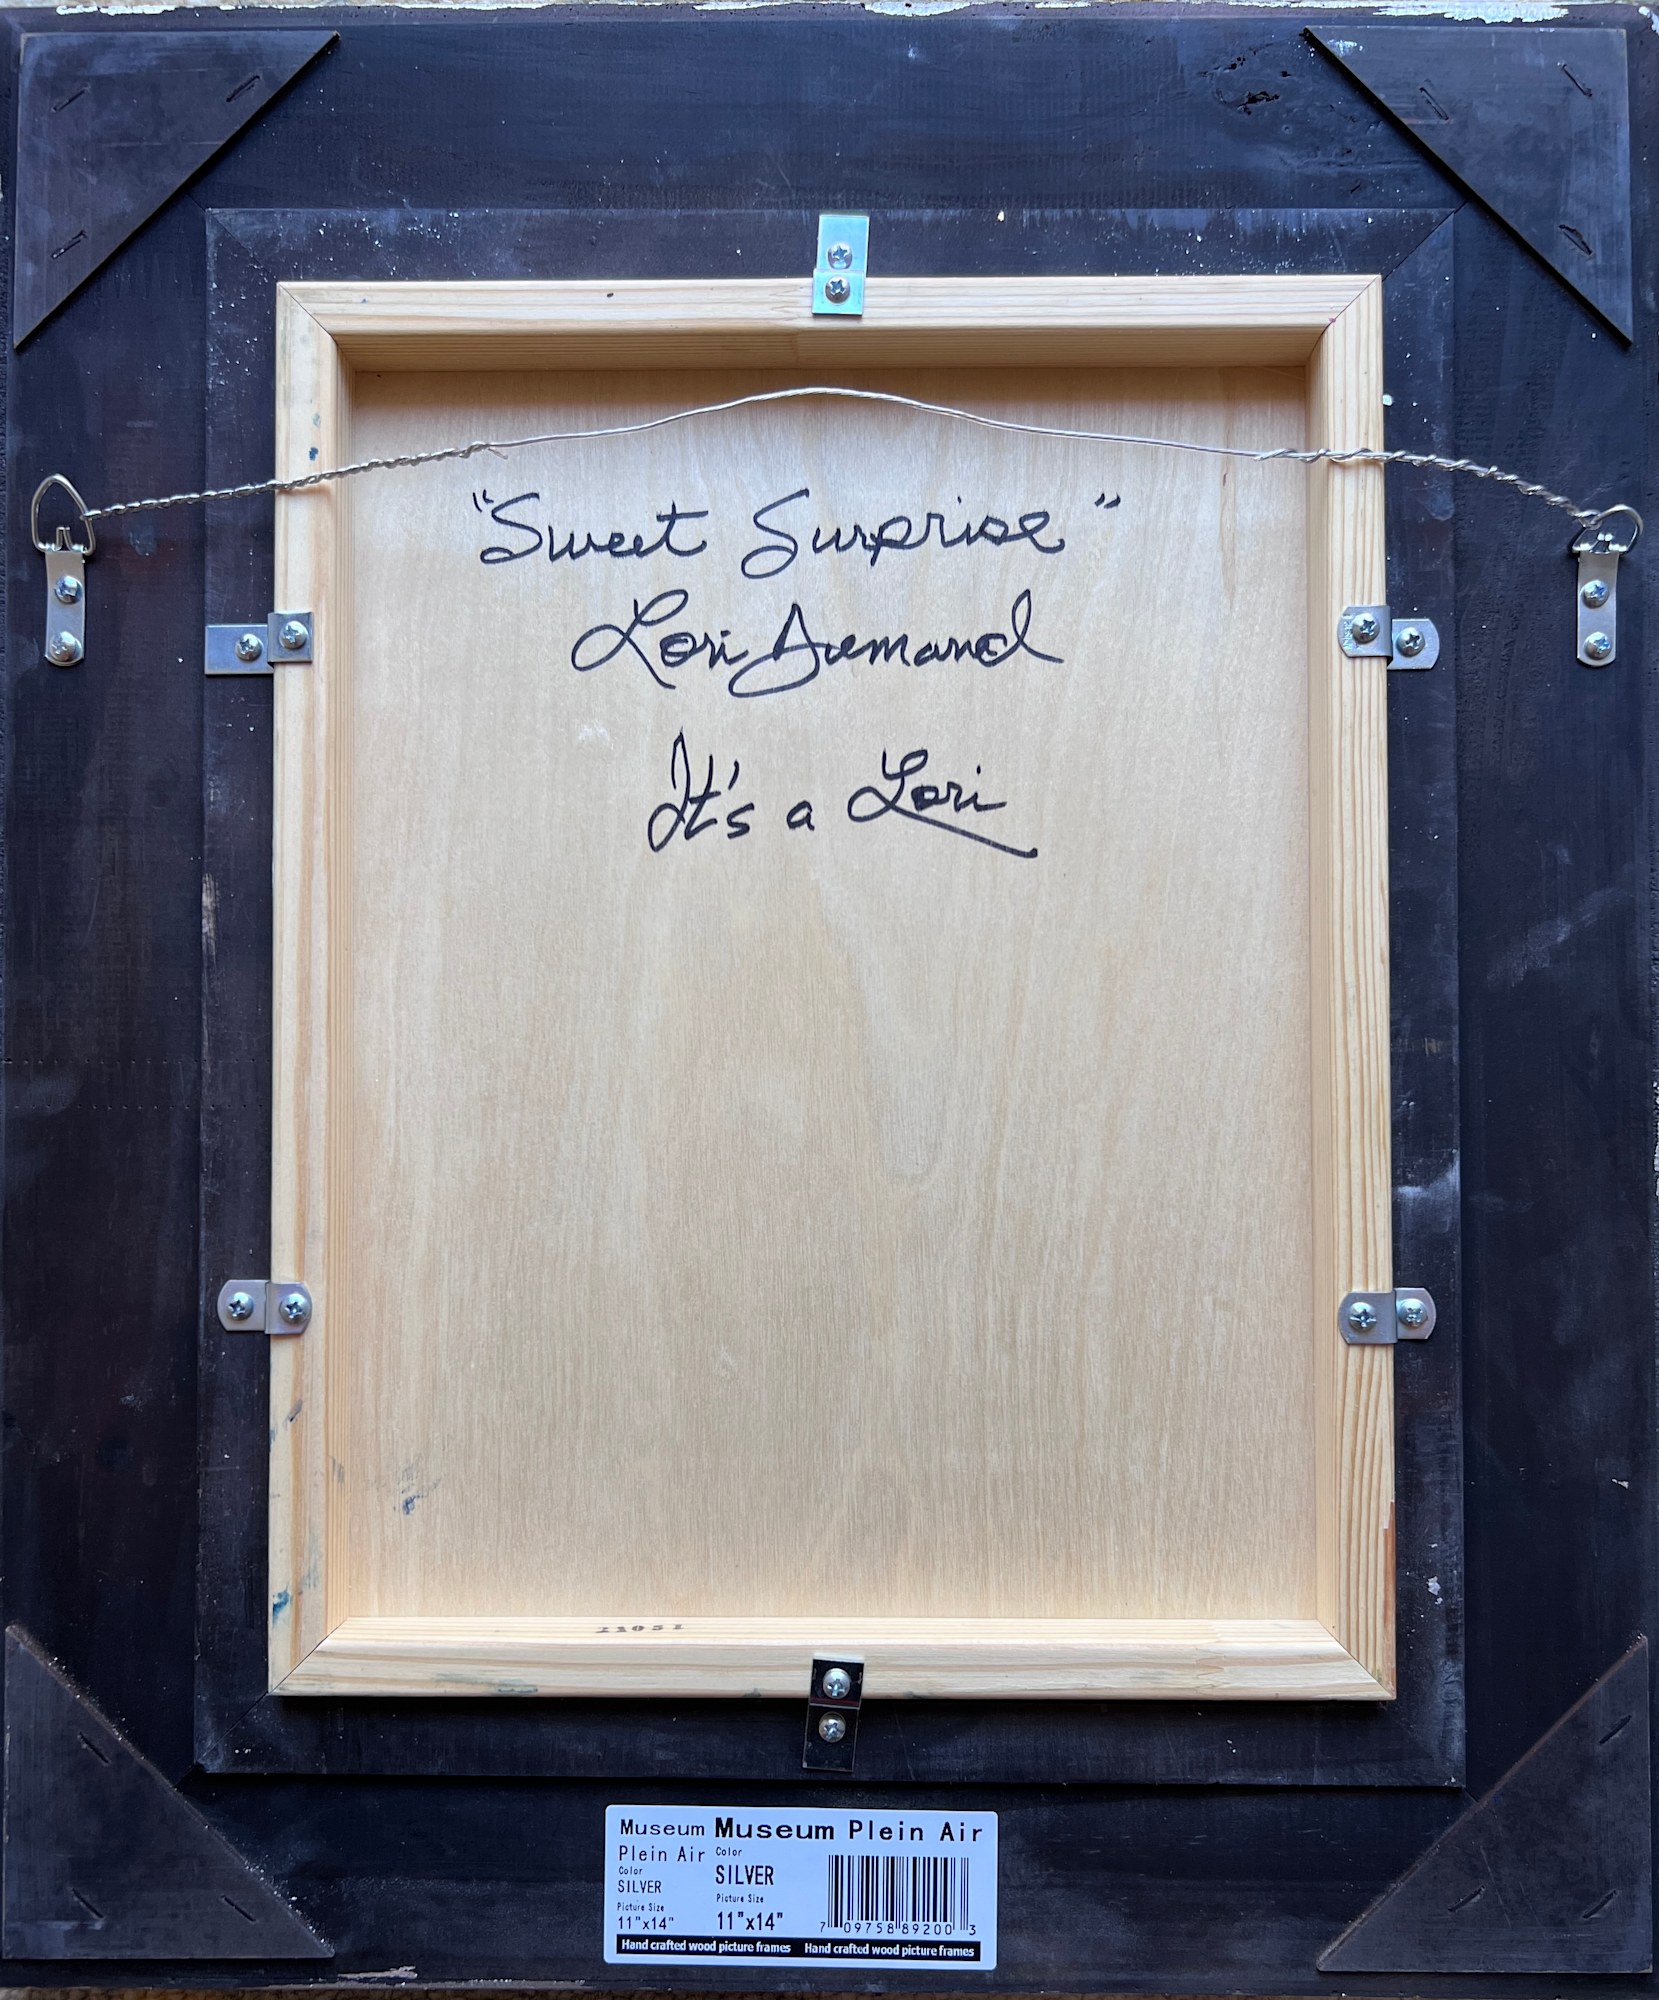 "Sweet Surprise"
Lori
It's a Lori
21051
Museum Museum Plein Air
Plein Air Color
Color SILVER
SILVER Picture Size
Picture Size 11"x14"
11"x14" 7 09758 89200 3
Hand crafted wood picture frames Hand crafted wood picture frames